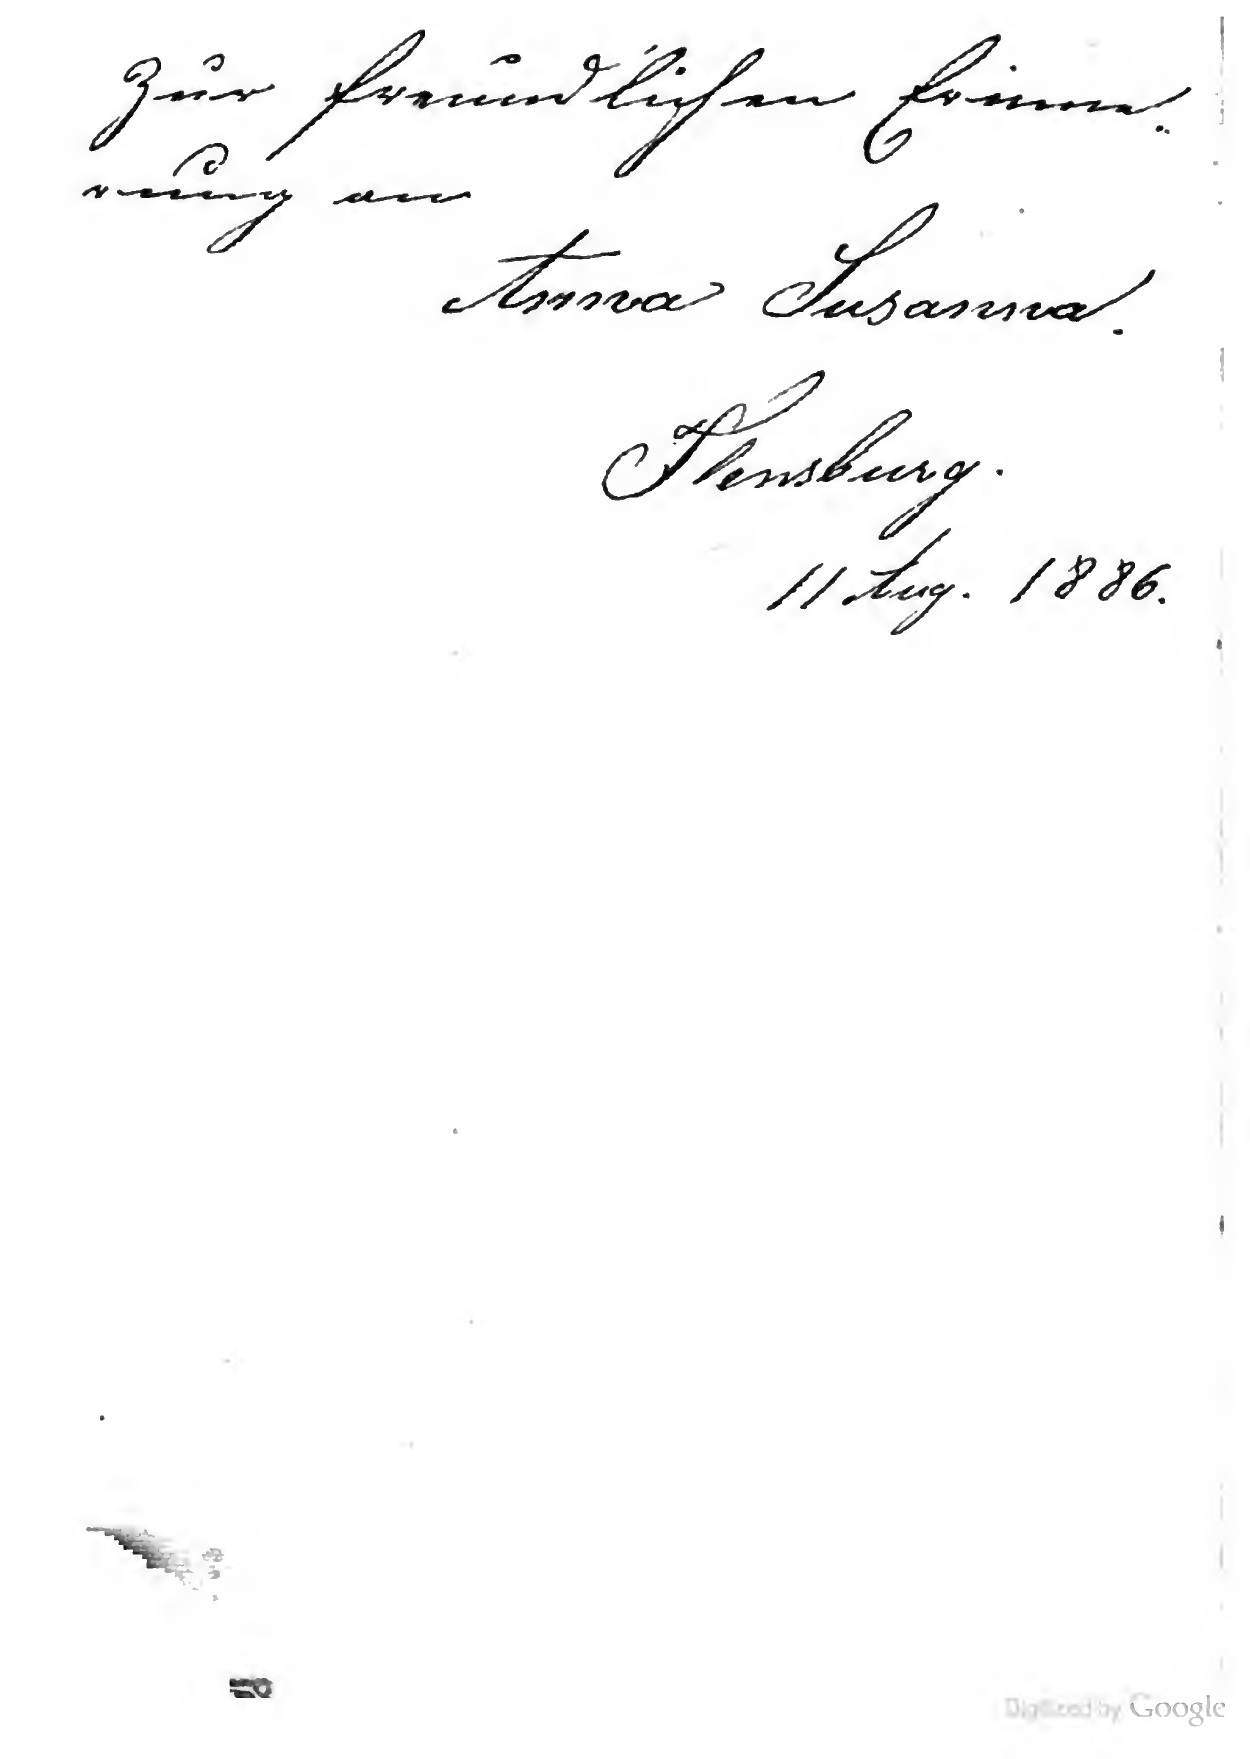 Zur freundlichen Erinne-
rung an
Anna Susanna.
Flensburg.
11 Aug. 1886.
Digitized by Google